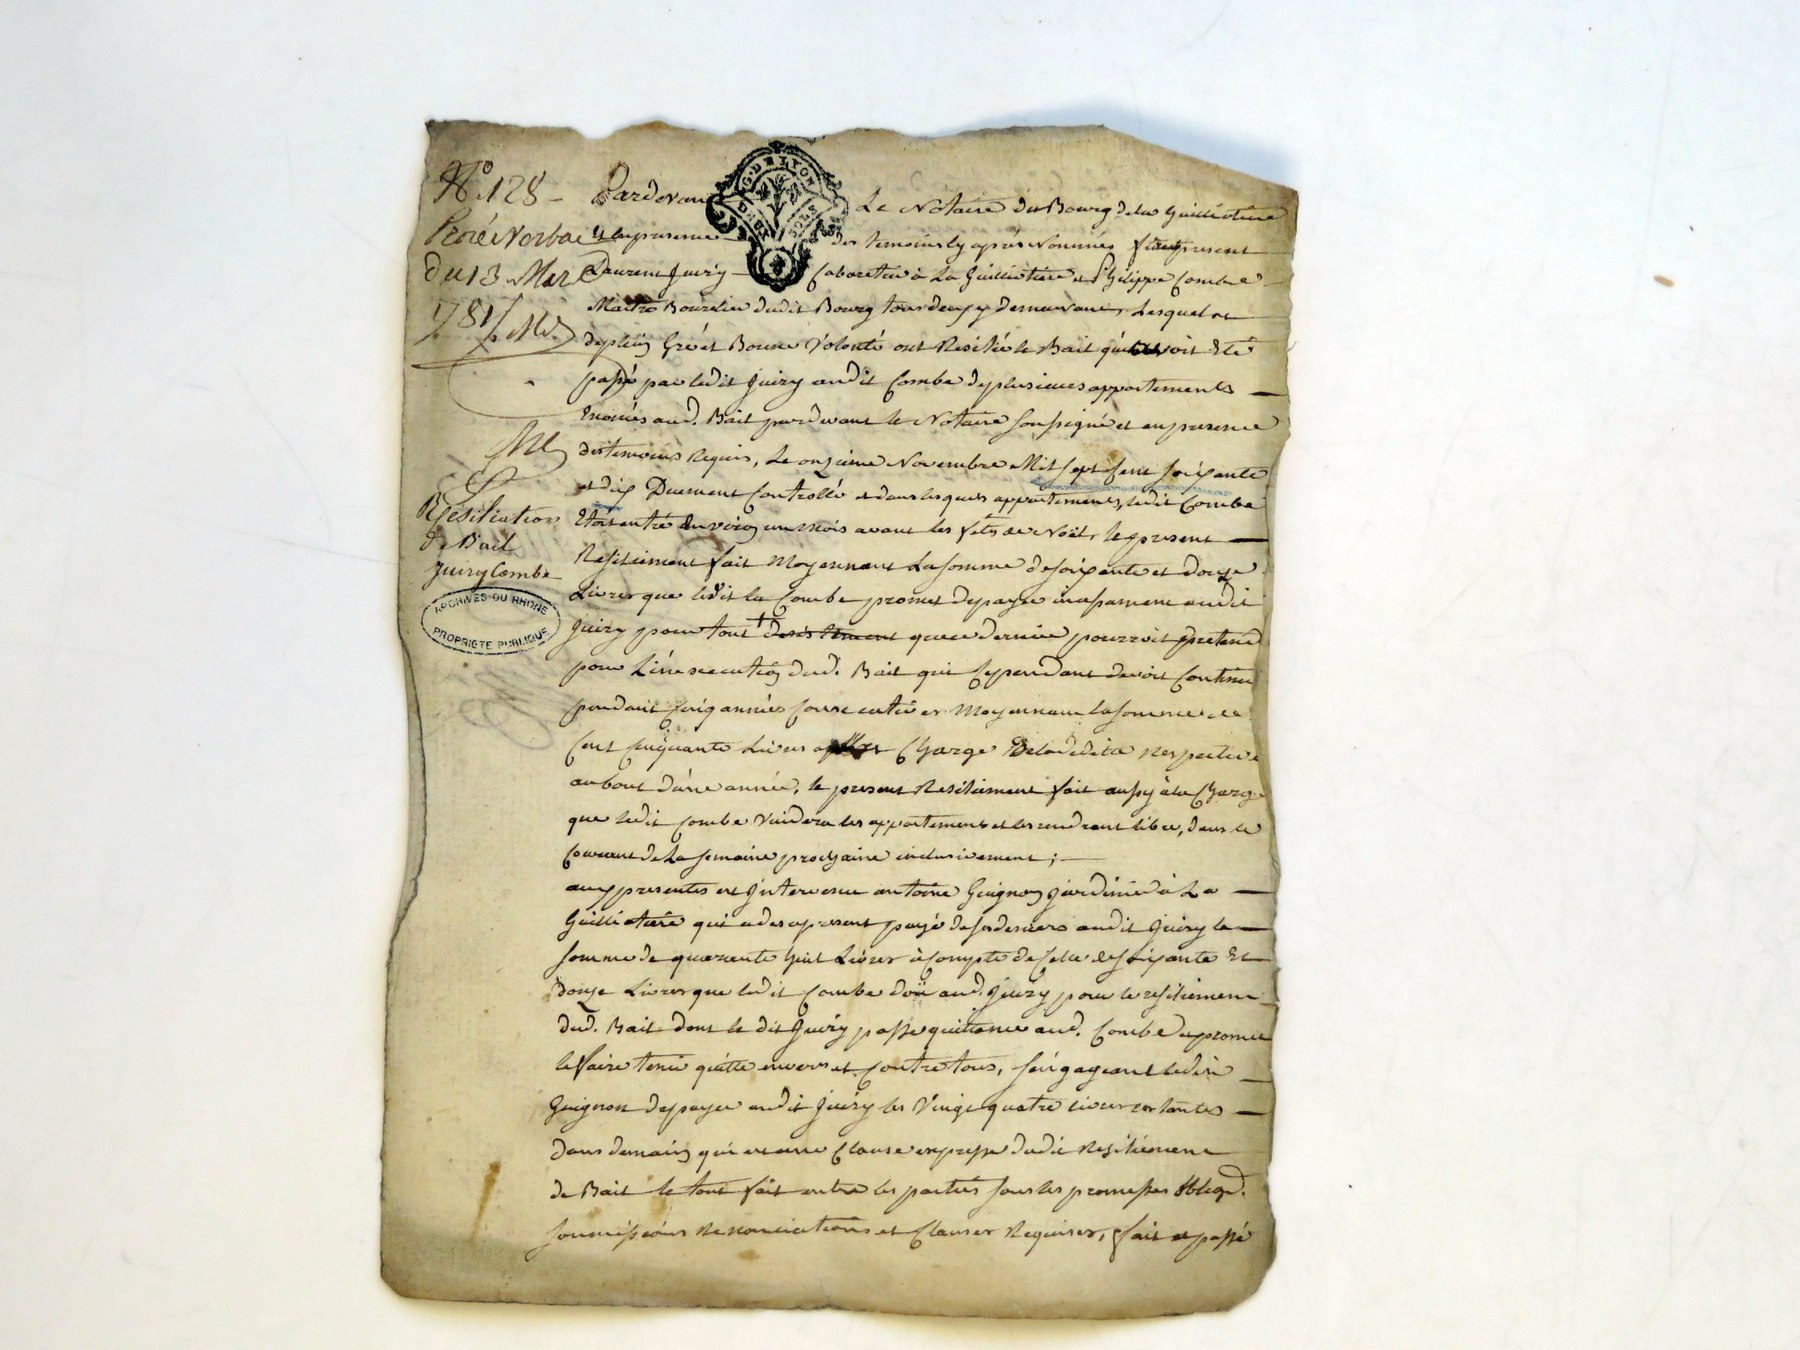 No. 128 -
Procé Verbal
du 13 Mars
1781 /. M.
Résiliation
de Bail
Juiry Combe
ARCHIVES DU RHÔNE
PROPRIÉTÉ PUBLIQUE
G. DE LYON
DEUX SOLS
Pardevant Le Notaire du Bourg de la Guillotiere
et En presence des temoins cy après Nommés furent present
Laurent Juiry Cabaretier à La Guillotiere et Philippe Combe
Maitre Bourelier dudit Bourg tous deux y demeurant, Lesquels
de plein Gré et Bonne Volonté ont Resilié le Bail qui avoit Eté
passé par ledit Juiry audit Combe de plusieurs appartements
Enoncés aud. Bail pardevant le Notaire soussigné et en presence
des temoins Requis, Le onzieme Novembre Mil sept cent soixante
et dix Duement Controllé et dans lesquels appartements ledit Combe
Etoit entré Environ un mois avant les fetes de Noël, le present
Resiliement fait Moyennant La somme de soixante et douze
Livres que ledit la Combe promet de payer incessament audit
Juiry pour tout desistement que ce dernier pourroit pretend
pour L'inexecution dud. Bail qui Cependant devoit Continuer
pendant cinq années consecutives Moyennant la somme de
Cent cinquante Livres Charge De la dedite respective
au bout d'une année, le present Resiliement fait aussy à la Charge
que ledit Combe Vuidera les appartements et les rendront libre, dans le
Courant de La semaine prochaine inclusivement ;
aux presentes est Intervenu antoine Guignon Jardinier à La
Guillotiere qui a des apresent payé de ses deniers audit Juiry la
somme de quarante huit Livres à compte de Celle de soixante Et
Douze Livres que ledit Combe doit aud. Juiry pour le resiliement
dud. Bail dont le dit Juiry passe quittance aud. Combe et promet
le faire tenir quitte envers et contre tous, s'engageant ledit
Guignon de payer audit Juiry les Vingt quatre livres restantes
dans demain qui est une Clause expresse dudit Resiliement
de Bail le tout fait entre les parties sous les promesses obligd.
soumissions Renonciations et Clauses Requises, fait et passé